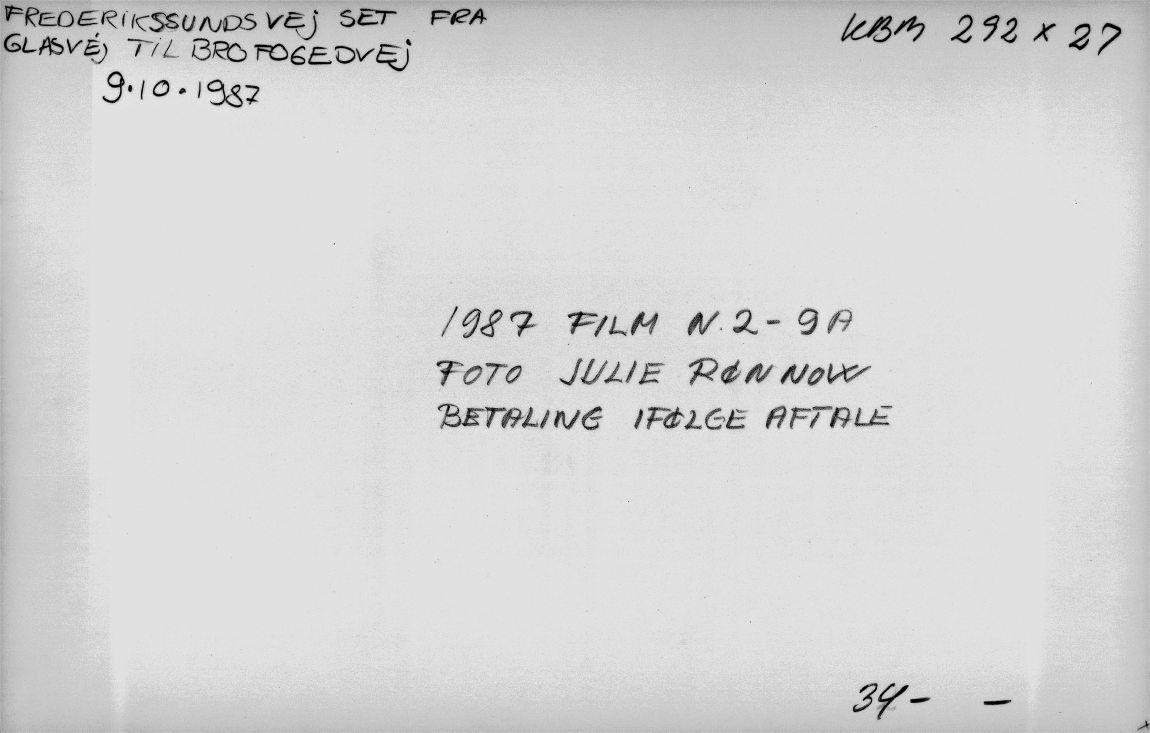 FREDERIKSSUNDSVEJ SET FRA
GLASVEJ TIL BROFOGEDVEJ
9.10.1987
KBM 292 x 27
1987 FILM N.2-9A
FOTO JULIE RØNNOW
BETALING IFØLGE AFTALE
34- -
x